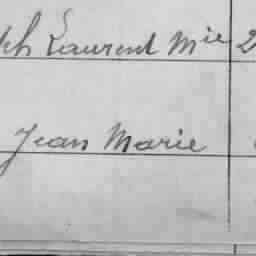 ph Laurent Mie 2
Jean Marie